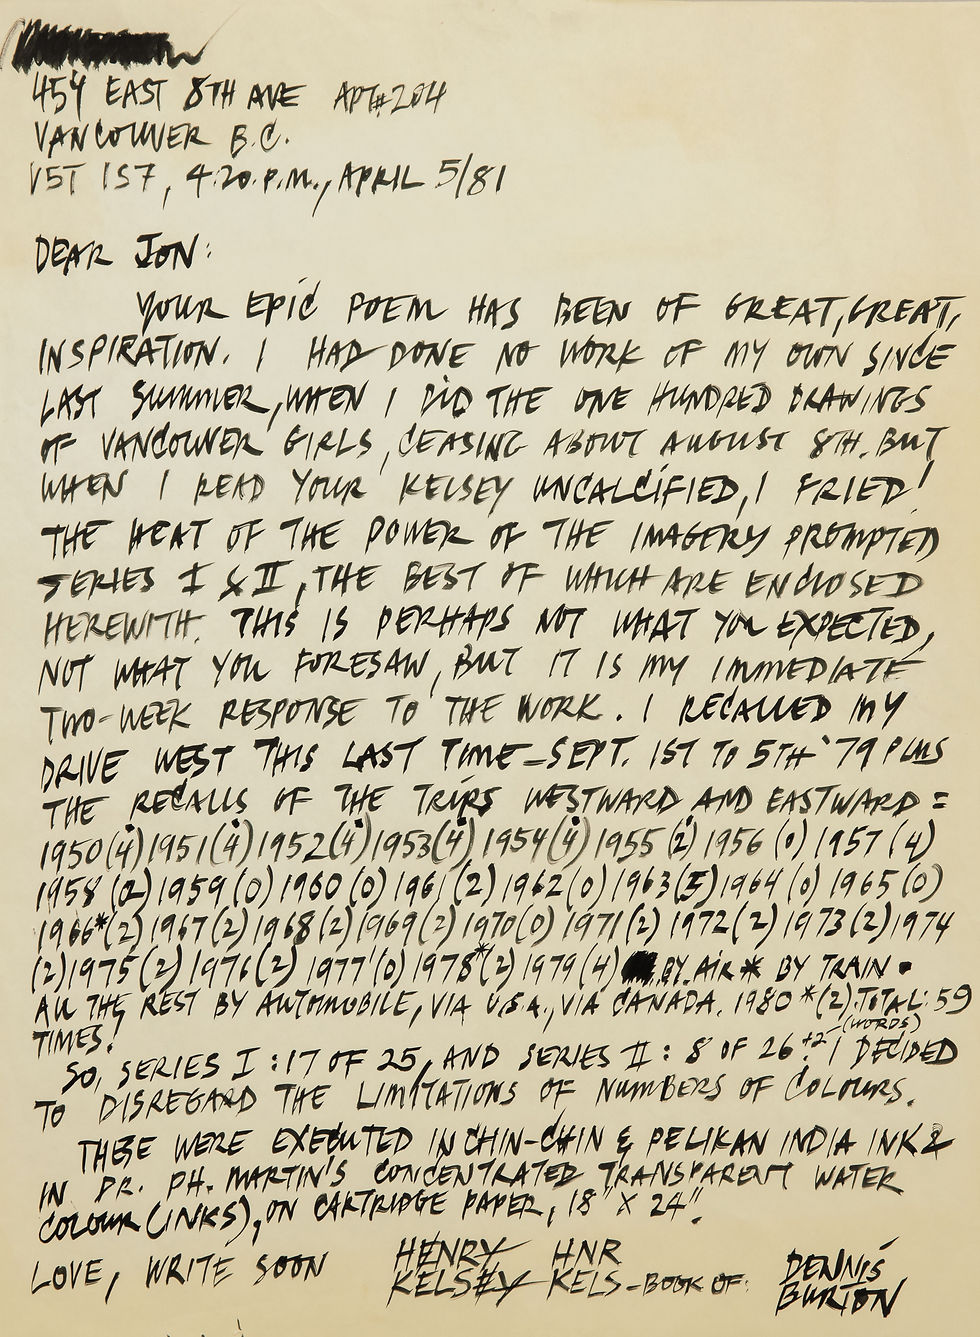 454 EAST 8TH AVE APT#204
VANCOUVER B.C.
V5T 1S7, 4:20.P.M., APRIL 5/81
DEAR JON:
YOUR EPIC POEM HAS BEEN OF GREAT, GREAT,
INSPIRATION. I HAD DONE NO WORK OF MY OWN SINCE
LAST SUMMER, WHEN I DID THE ONE HUNDRED DRAWINGS
OF VANCOUVER GIRLS, CEASING ABOUT AUGUST 8TH. BUT
WHEN I READ YOUR KELSEY UNCALCIFIED, I FRIED!
THE HEAT OF THE POWER OF THE IMAGERY PROMPTED
SERIES I & II, THE BEST OF WHICH ARE ENCLOSED
HEREWITH. THIS IS PERHAPS NOT WHAT YOU EXPECTED,
NOT WHAT YOU FORESAW, BUT IT IS MY IMMEDIATE
TWO-WEEK RESPONSE TO THE WORK. I RECALLED MY
DRIVE WEST THIS LAST TIME - SEPT. 1ST TO 5TH '79 PLUS
THE RECALLS OF THE TRIPS WESTWARD AND EASTWARD =
1950 (4) 1951 (4) 1952 (4) 1953 (4) 1954 (4) 1955 (2) 1956 (0) 1957 (4)
1958 (2) 1959 (0) 1960 (0) 1961 (2) 1962 (0) 1963 (5) 1964 (0) 1965 (0)
1966* (2) 1967 (2) 1968 (2) 1969 (2) 1970 (0) 1971 (2) 1972 (2) 1973 (2) 1974
(2) 1975 (2) 1976 (2) 1977 (0) 1978* (2) 1979 (4) BY AIR * BY TRAIN •
ALL THE REST BY AUTOMOBILE, VIA U.S.A., VIA CANADA. 1980 * (2). TOTAL: 59
TIMES!
SO, SERIES I : 17 OF 25, AND SERIES II : 8 OF 26 +2 (WORDS). I DECIDED
TO DISREGARD THE LIMITATIONS OF NUMBERS OF COLOURS.
THESE WERE EXECUTED IN CHIN-CHIN & PELIKAN INDIA INK &
IN DR. PH. MARTIN'S CONCENTRATED TRANSPARENT WATER
COLOUR (INKS), ON CARTRIDGE PAPER, 18" X 24".
LOVE, WRITE SOON HENRY HNR DENNIS
KELSEY KELS - BOOK OF: BURTON